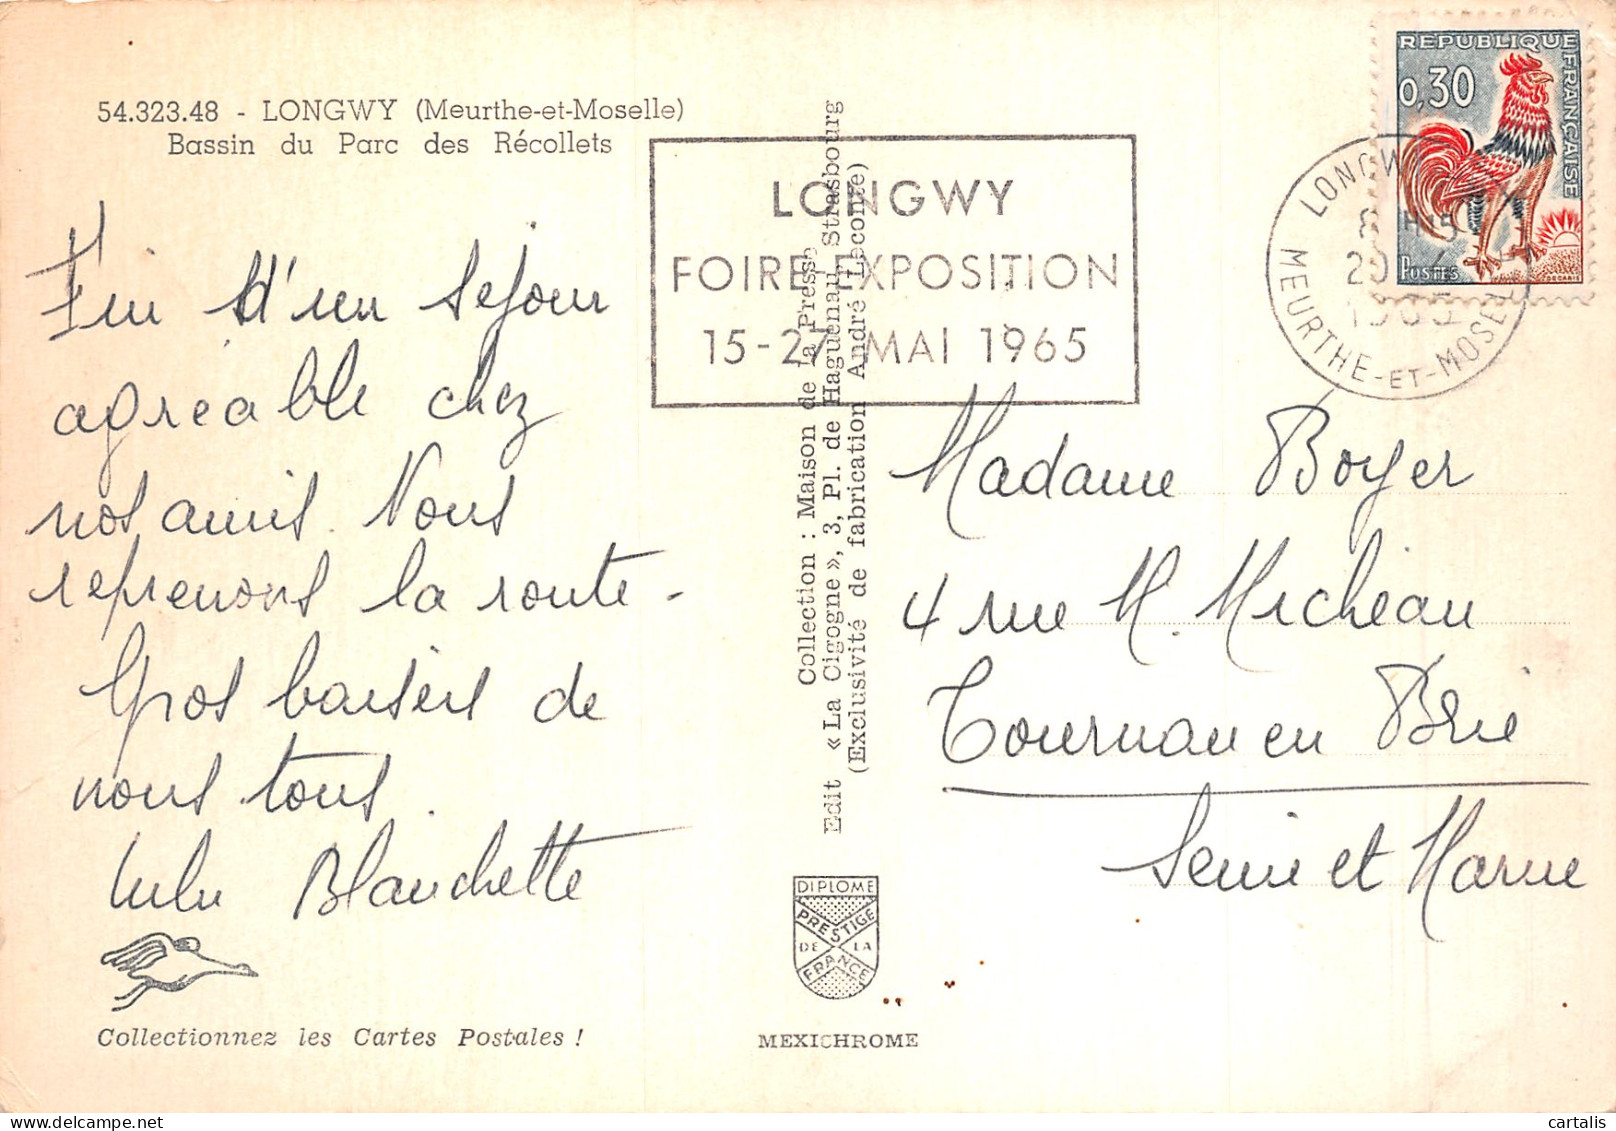 54.323.48 - LONGWY (Meurthe-et-Moselle)
Bassin du Parc des Récollets
Fin d'un séjour
agréable chez
nos amis. Nous
reprenons la route -
Gros baisers de
nous tous.
Lulu Blanchette
Collectionnez les Cartes Postales !
Collection : Maison de La Presse
Edit « La Cigogne », 3, Pl. de Haguenau Strasbourg
(Exclusivité de fabrication André Leconte)
LONGWY
FOIRE EXPOSITION
15-27 MAI 1965
REPUBLIQUE FRANÇAISE
0,30
POSTES
LONGWY
MEURTHE-ET-MOSELLE
1965
Madame Boyer
4 rue M. Micheau
Tournan en Brie
Seine et Marne
DIPLOME
PRESTIGE
DE LA
FRANCE
MEXICHROME
cartalis